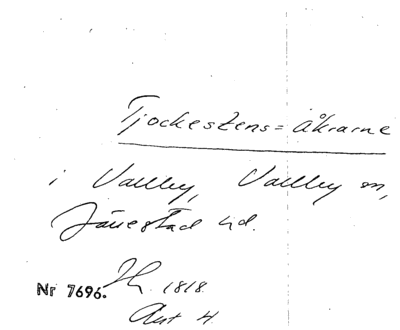 Tjockestens=åkrarne
i Valley, Valley sn,
Järestad hd.
Nr 7696. 1818
Akt 4